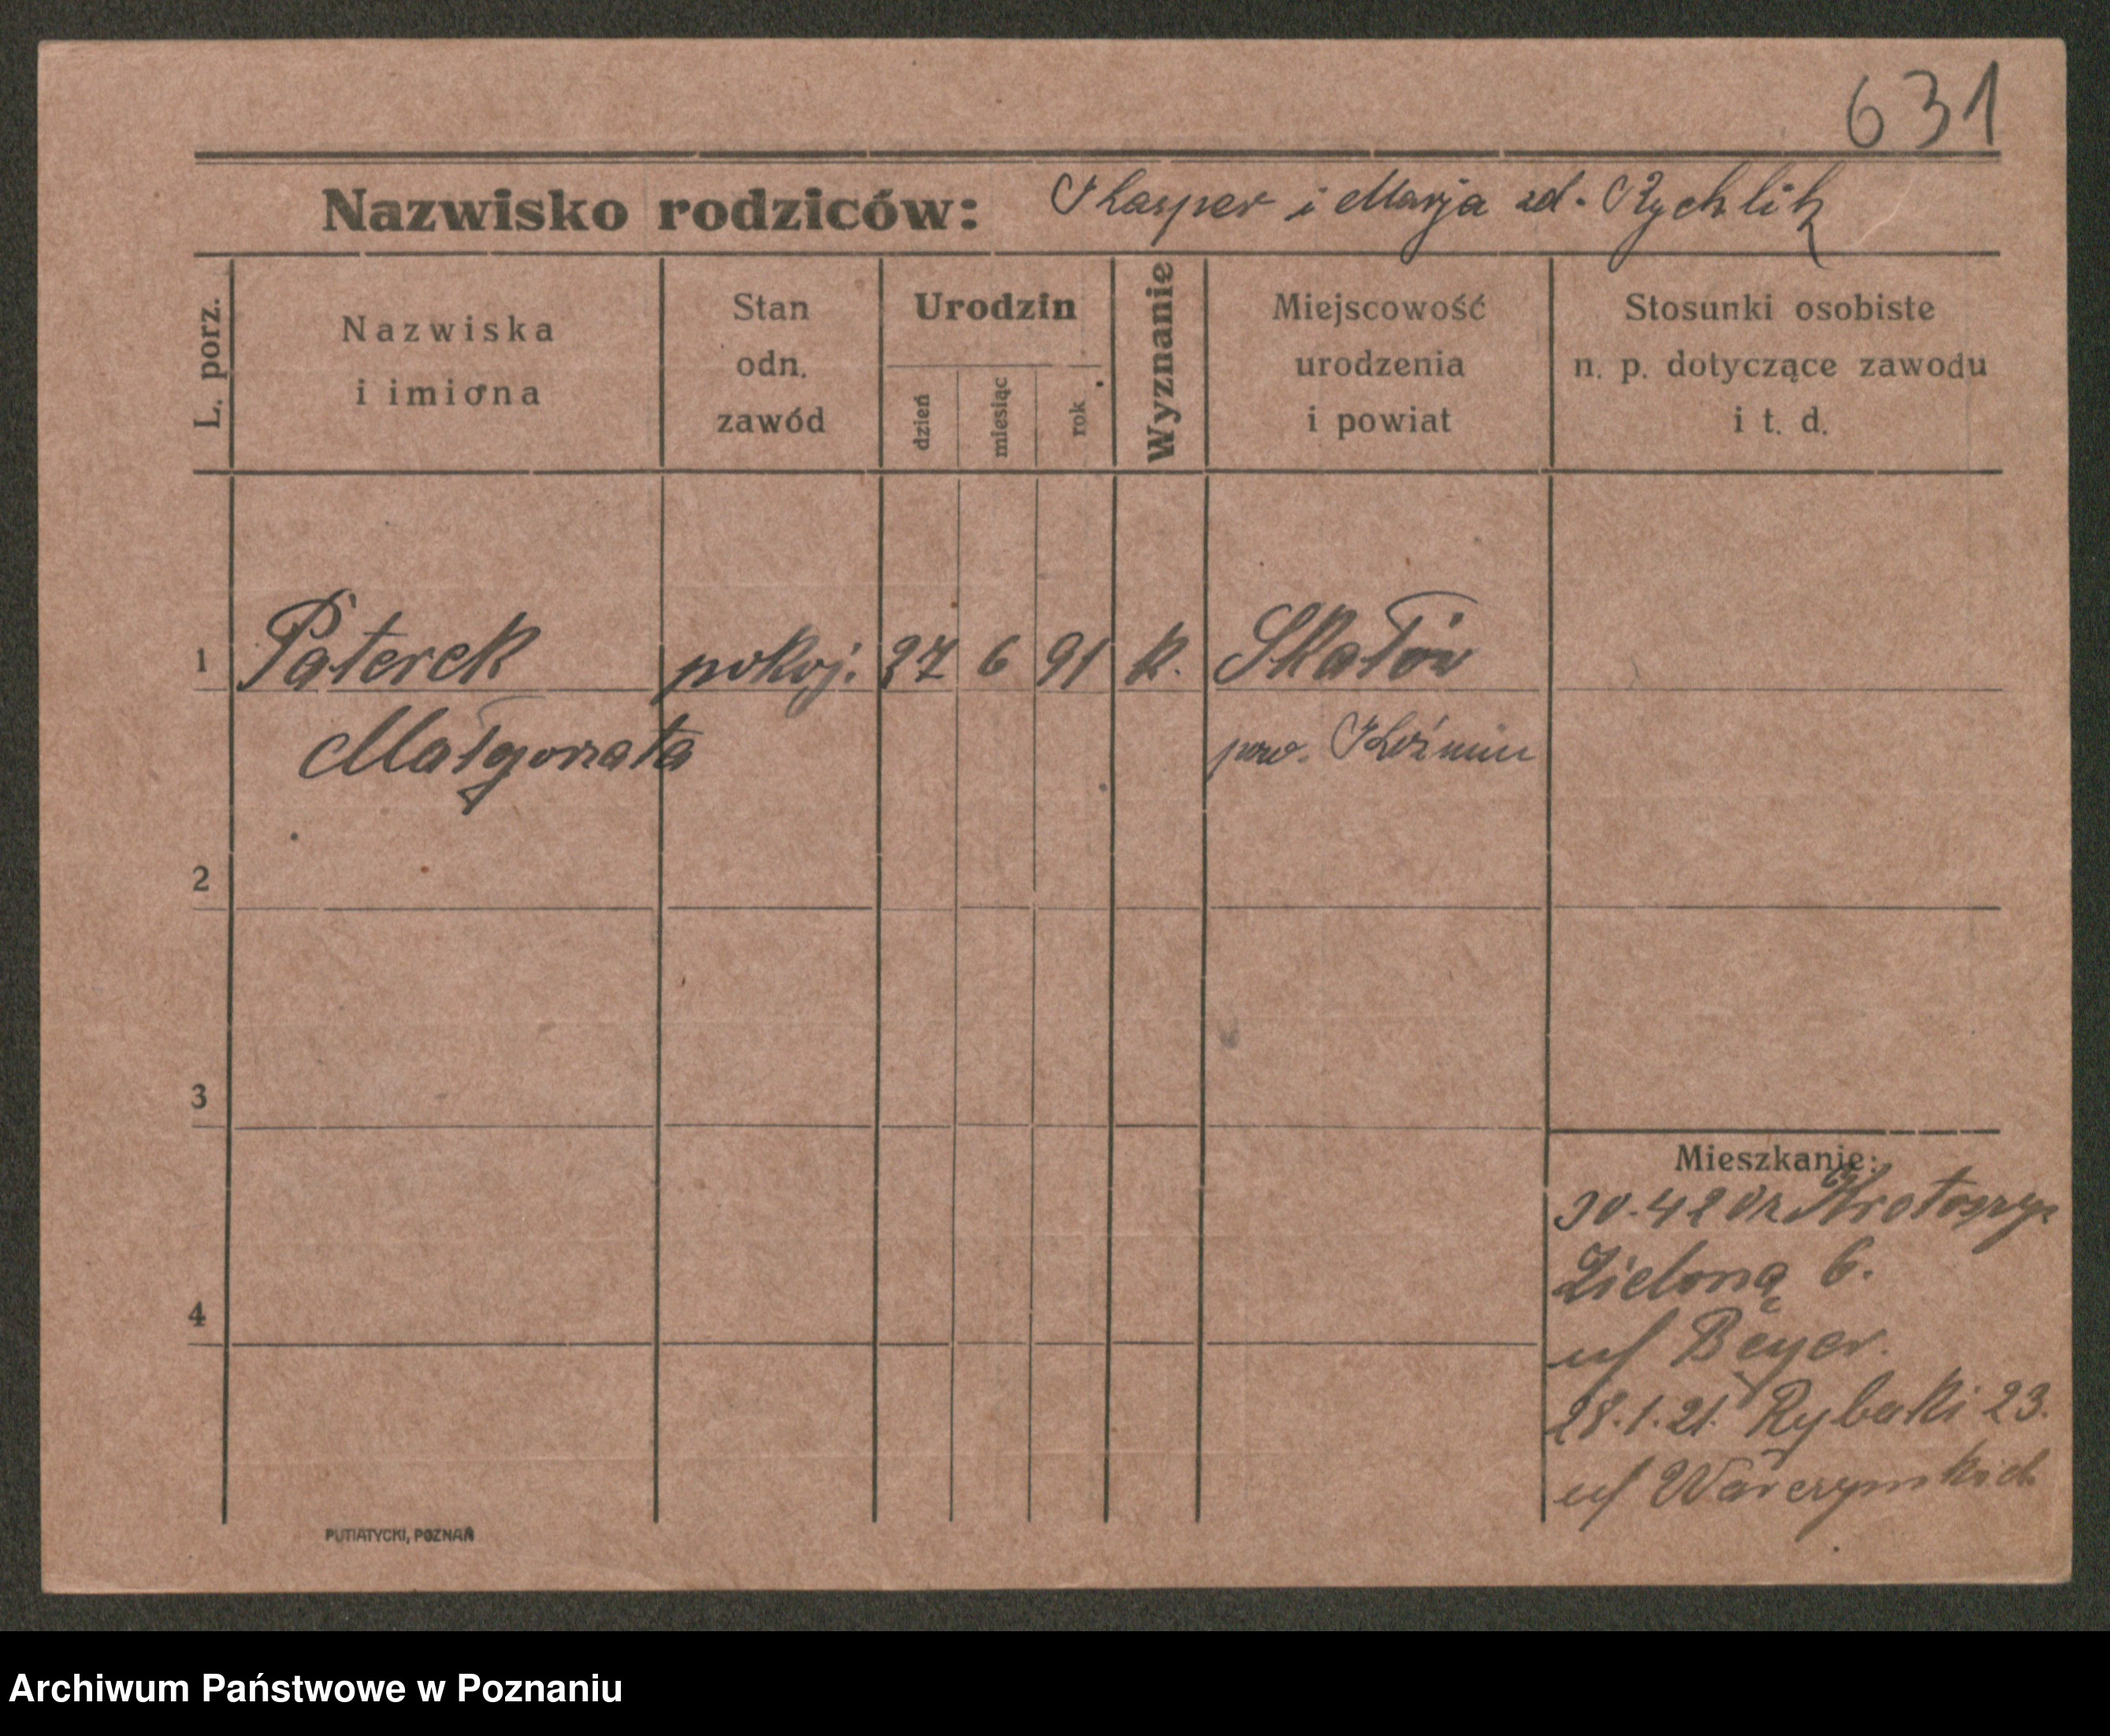 631
Nazwisko rodziców: Kasper i Marja zd. Rychlik
L. porz.
Nazwiska
i imiona
Stan
odn.
zawód
Urodzin
dzień
miesiąc
rok
Wyznanie
Miejscowość
urodzenia
i powiat
Stosunki osobiste
n. p. dotyczące zawodu
i t. d.
1 Paterek pokoj. 27 6 91 k. Skałów
Małgorzata pow. Koźmin
2
3
4
Mieszkanie:
30.4 20 z Krotoszyn
Zielona 6.
u/ Beyer.
28.1.21. Rybaki 23.
u/
PUTIATYCKI, POZNAŃ
Archiwum Państwowe w Poznaniu